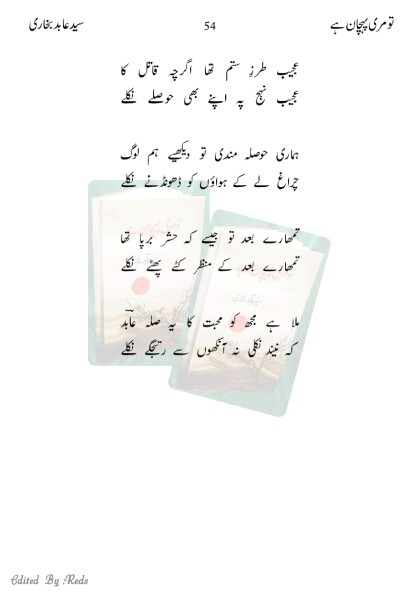 تو مری پہچان ہے 54 سید عابد بخاری
عجیب طرزِ ستم تھا اگرچہ قاتل کا
عجیب نہج پہ اپنے بھی حوصلے نکلے
ہماری حوصلہ مندی تو دیکھیے ہم لوگ
چراغ لے کے ہواؤں کو ڈھونڈنے نکلے
تمھارے بعد تو جیسے کہ حشر برپا تھا
تمھارے بعد کے منظر کٹے پھٹے نکلے
ملا ہے مجھ کو محبت کا یہ صلہ عابدؔ
کہ نیند نکلی نہ آنکھوں سے رتجگے نکلے
Edited By Reds